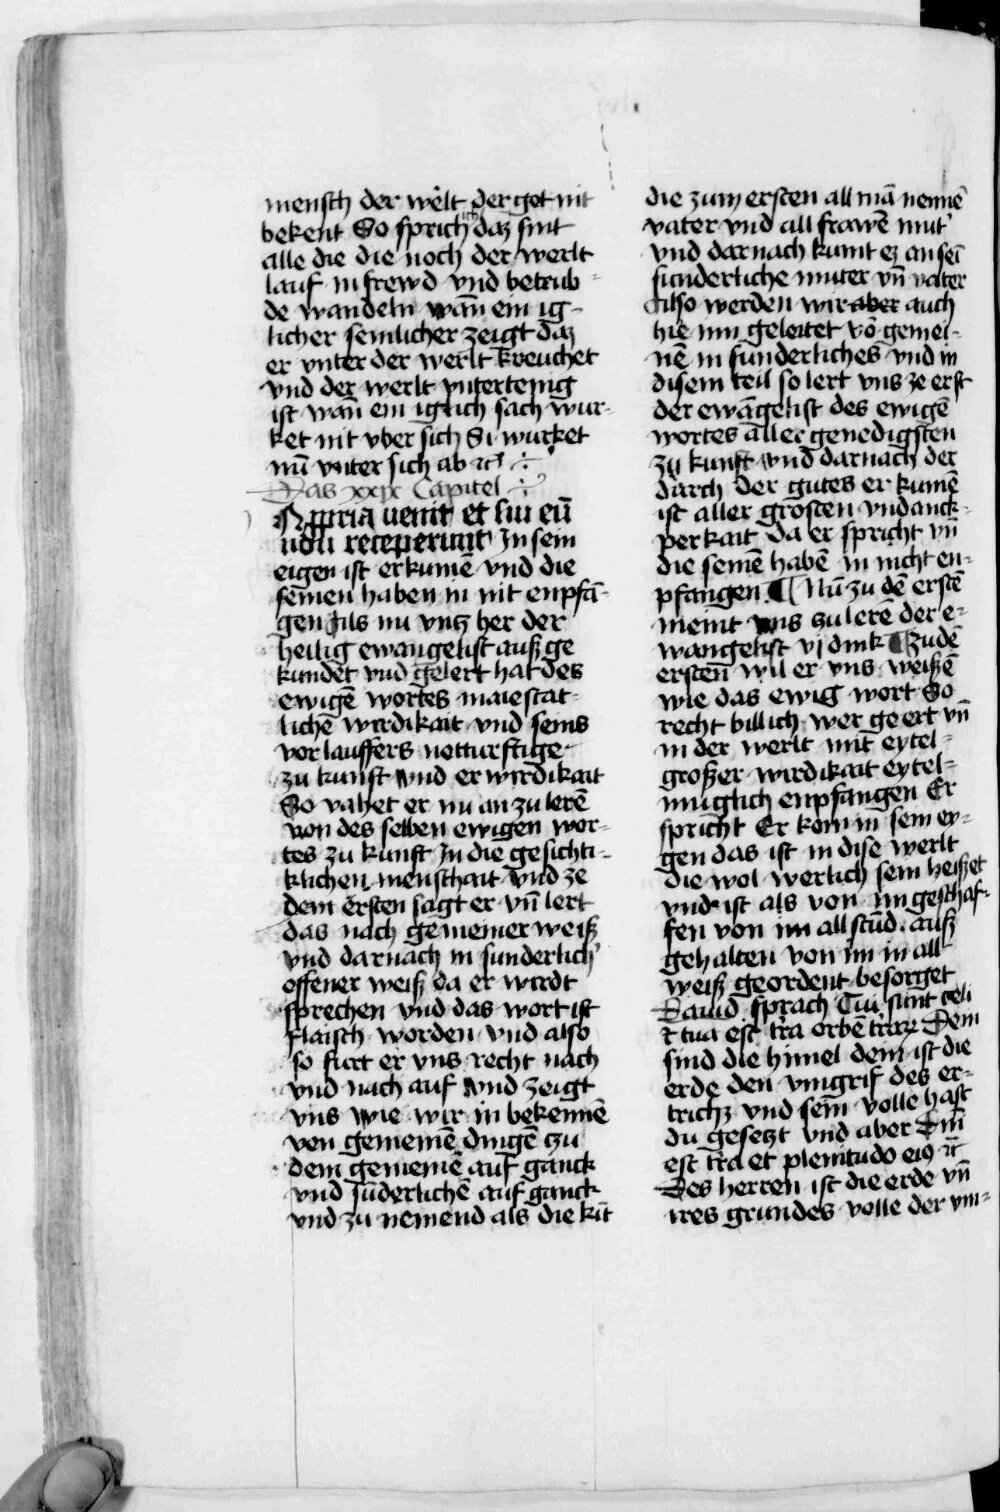 mensch der welt der got nit
bekent So sprich ich daz sint
alle die die noch der werlt
lauf in frewd vnd betrub-
de wandeln wañ ein ig-
licher semlicher zeigt daz
er vnter der werlt kreuchet
vnd der werlt vntertenig
ist wañ ein iglich sach wur-
ket nit vber sich Si wurket
nũ vnter sich ab
Das xxix Capitel
In ppria uenit et sui eũ
nõ receperunt In sein
eigen ist er kumẽ vnd die
seinen haben in nit enpfã-
gen Als nu vntz her der
heilig ewangelist auß ge
kundet vnd gelert hat des
ewigẽ wortes maiestat-
lichẽ wirdikait vnd seins
vorlauffers notturftige
zu kunft vnd er wirdikait
So vahet er nu an zu lerẽ
von des selben ewigen wor-
tes zu kunft In die gesichti-
klichen menschait vnd ze
dem ersten sagt er vñ lert
das nach gemeiner weiß
vnd darnach in sunderlich'
offener weiß da er wirdt
sprechen vnd das wort ist
flaisch worden vnd also
so furt er vns recht nach
vnd nach auf vnd zeigt
vns wie wir in bekennẽ
von gemeinẽ dingẽ zu
dem gemeinẽ auf ganck
vnd sũderlichẽ auf ganck
vnd zu nemend als die kĩt
die zum ersten all mã nennẽ
vater vnd all frawẽ mut'
vnd darnach kumt ez an seĩ
sunderliche muter vñ vater
Also werden wir aber auch
hie inn geleitet võ gemei-
nẽ in sunderliches vnd in
disem teil so lert vns ze erst
der ewãgelist des ewigẽ
wortes aller genedigsten
zu kunft vnd darnach der
durch der gutes er kumẽ
ist aller grosten vndanck-
perkait da er spricht vñ
die seinẽ habẽ in nicht en-
pfangen ¶ Nũ zu dẽ erstẽ
meint vns zu lerẽ der e-
wangelist vj dink ¶ zu dẽ
ersten wil er vns weißẽ
wie das ewig wort So
recht billich wer geert vñ
in der werlt mit eytel-
großer wirdikait eytel-
muglich enpfangen Er
spricht Er kom in sein ey-
gen das ist in dise werlt
die wol werlich sein heißet
vnd ist als von im geschaf-
fen von im all stũd auß
gehalten von im in all
weiß geordent besorget
Dauid sprach Tui sunt celi
et tua est t'ra orbẽ Dein
sind die himel dein ist die
erde den vmgrif des er-
trichz vnd sein volle hast
du gesetzt vnd aber Dñi
est t'ra et plenitudo eiꝰ
Des herren ist die erde vñ
ires grundes volle der vm-